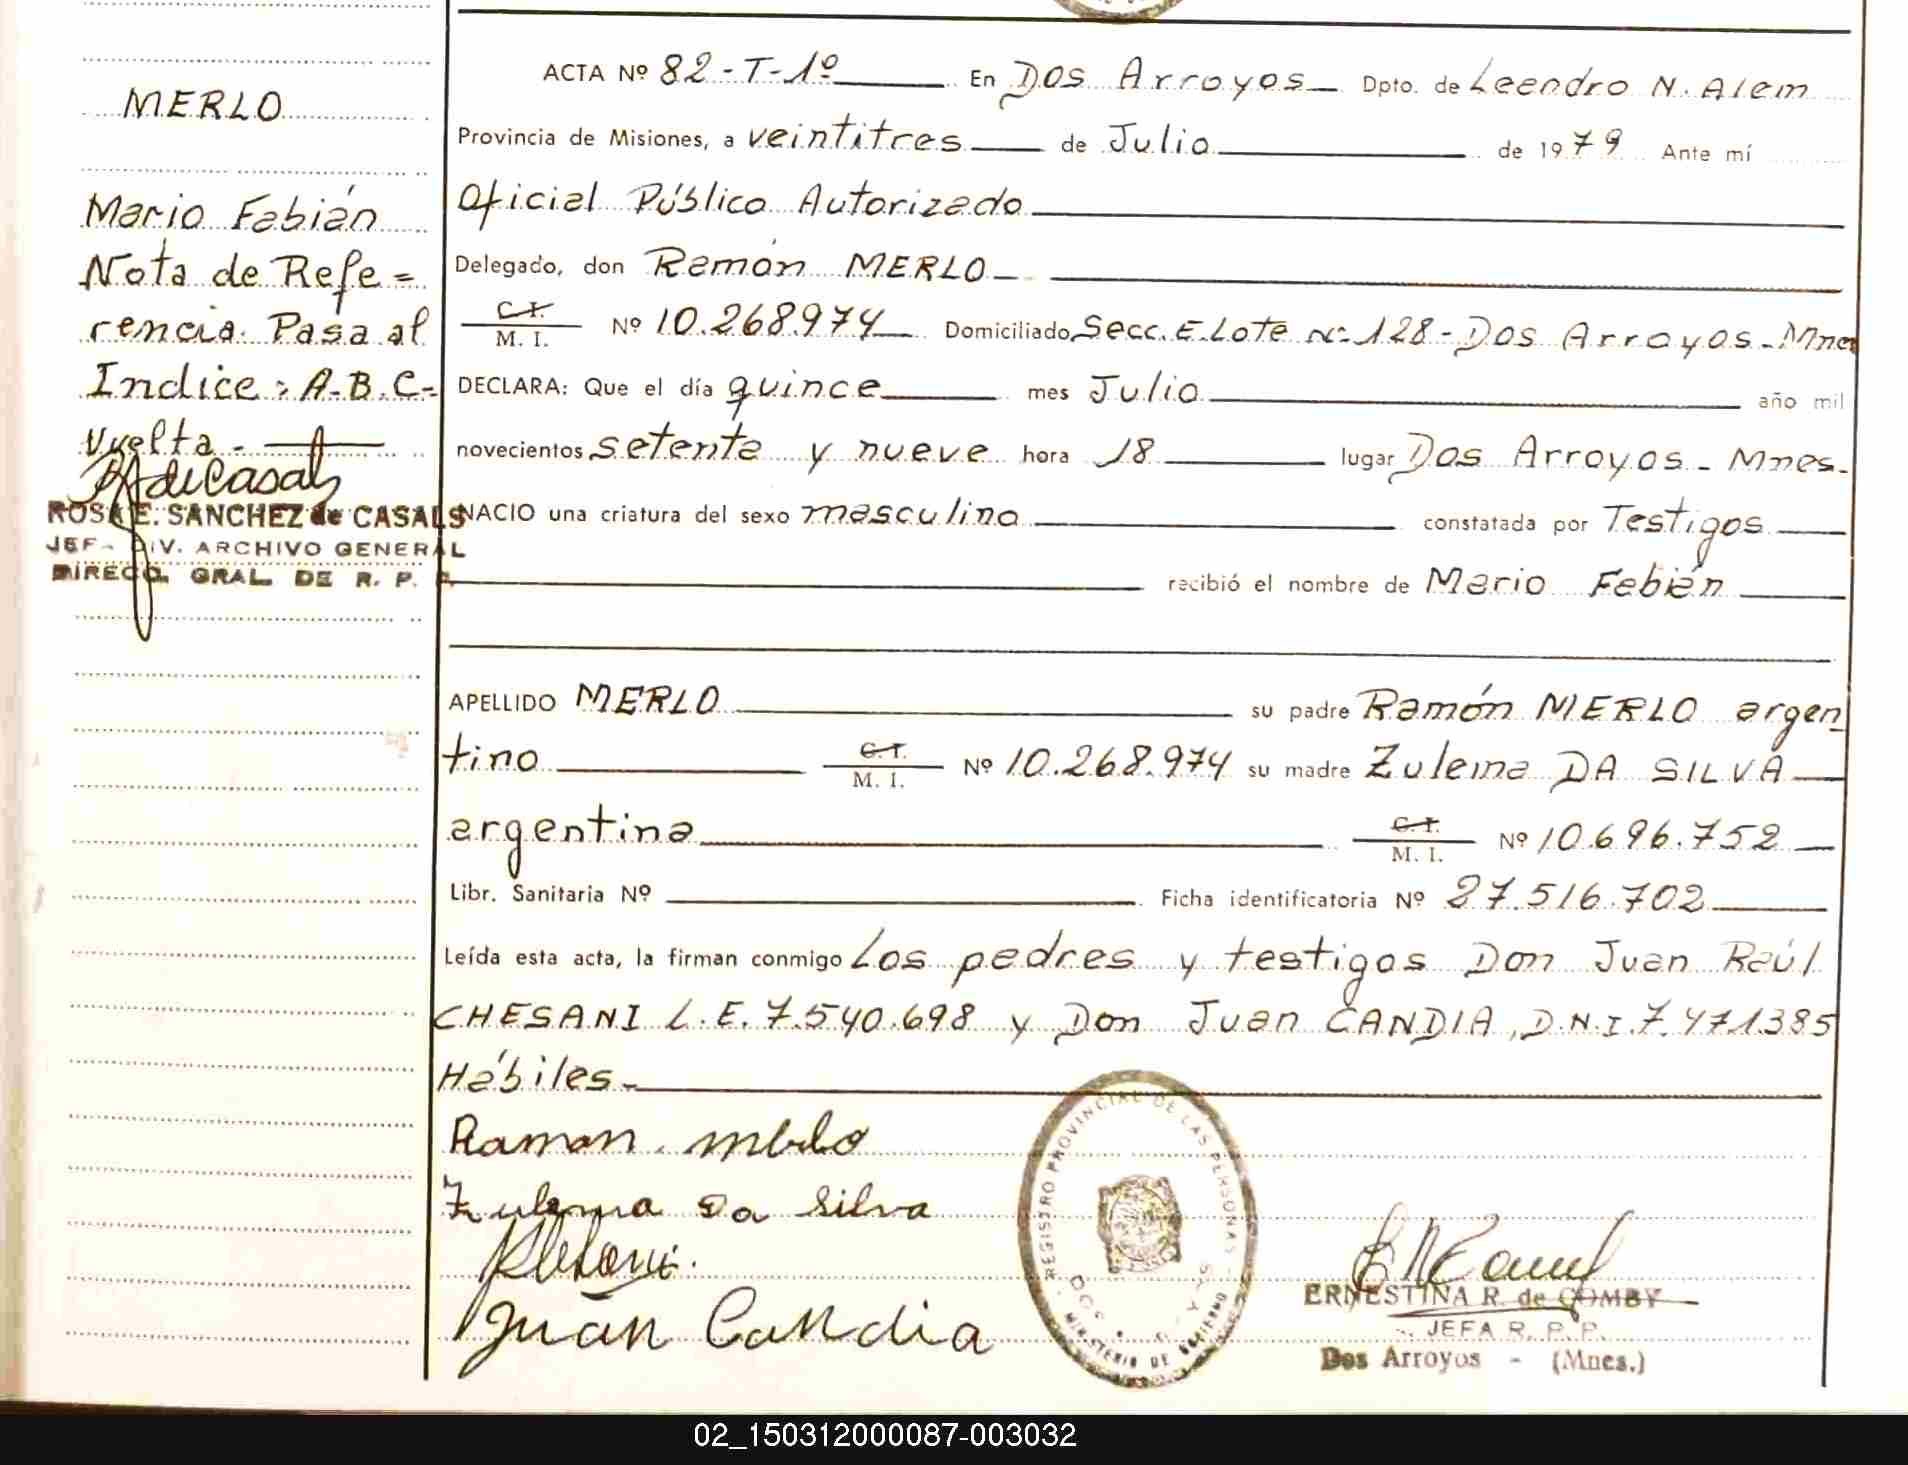 MERLO
Mario Fabián
Nota de Refe=
rencia. Pasa al
Indice: A-B.C-
Vuelta.-
ROSA E. SANCHEZ de CASALS
JEF- DIV. ARCHIVO GENERAL
DIRECC. GRAL. DE R. P.
ACTA Nº 82-T-1º En Dos Arroyos Dpto. de Leandro N. Alem
Provincia de Misiones, a veintitres de Julio de 1979 Ante mí
Oficial Público Autorizado
Delegado, don Ramón MERLO
C.I. / M. I. Nº 10.268.974 Domiciliado Secc. E. Lote Nº 128-Dos Arroyos-Mnes
DECLARA: Que el día quince mes Julio año mil
novecientos setenta y nueve hora 18 lugar Dos Arroyos - Mnes.
NACIO una criatura del sexo masculino constatada por Testigos
recibió el nombre de Mario Fabián
APELLIDO MERLO su padre Ramón MERLO argen
tino C.I. / M. I. Nº 10.268.974 su madre Zulema DA SILVA
argentina C.I. / M. I. Nº 10.696.752
Libr. Sanitaria Nº Ficha identificatoria Nº 27.516.702
Leída esta acta, la firman conmigo Los padres y testigos Don Juan Raúl
CHESANI L.E. 7.540.698 y Don Juan CANDIA, D.N.I. 7.471385
Hábiles.-
Ramon Merlo
Zulema Da Silva
Juan Candia
REGISTRO PROVINCIAL DE LAS PERSONAS
MINISTERIO DE GOBIERNO
ERNESTINA R. de COMBY
JEFA R. P. P.
Dos Arroyos - (Mnes.)
02_150312000087-003032